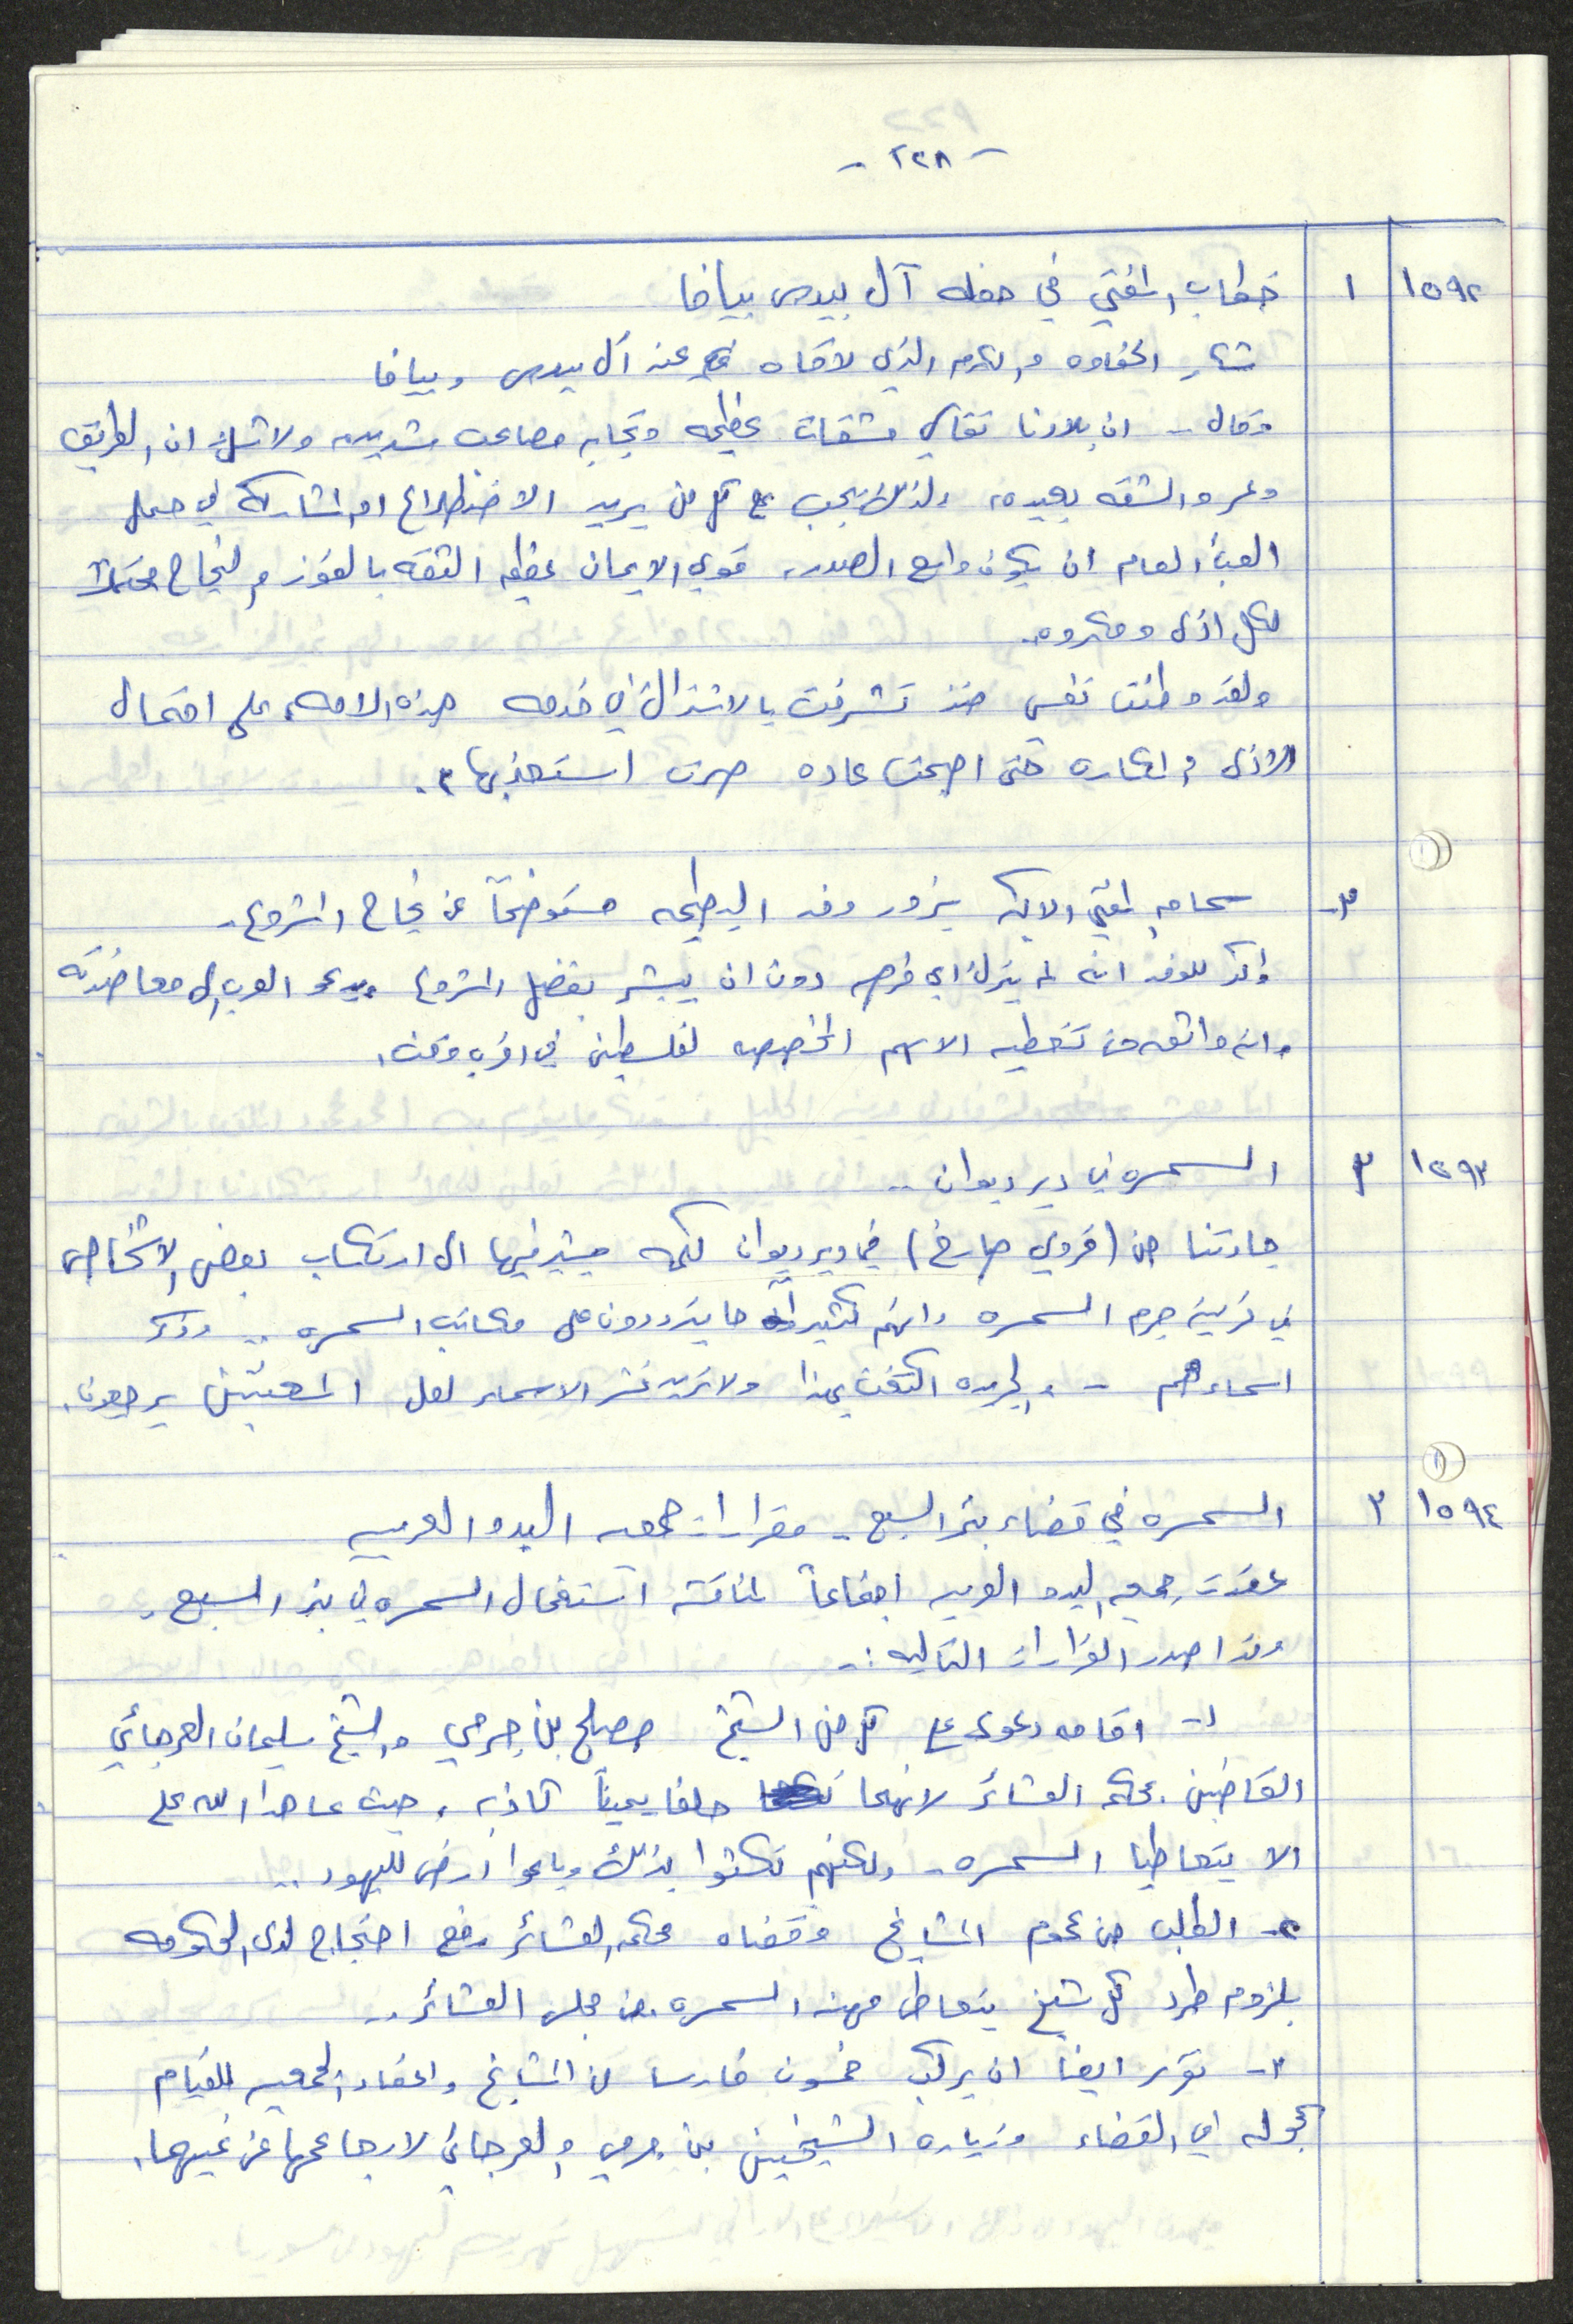 - ٢٢٨ -
١٥٩٢ ١ خطاب المفتي في حفله آل بيدس بيافا
شاكر الحفاوه والكرم الذي لاقاه عند آل بيدس وبيافا
وقال - ان بلادنا تقاسي مشقات عظيمه وتجابه مصاعب شديده ولا شك ان الطريق
وعر والشقه بعيده، ولذلك يجب على كل من يريد الاضطلاع او المشاركه في حمل
العبأ العام ان يكون واسع الصدر، قوي الايمان عظيم الثقه بالفوز والنجاح محتملاً
لكل اذى ومكروه.
ولقد وطنت نفسي منذ تشرفت بالاشتراك في خدمه هذه الامه، على احتمال
الاذى والمكاره حتى اصبحت عاده صرت استعذبها.
٢- سماحه المفتي الاكبر يزور وفد البرطيمه مستوضحاً عن نجاح المشروع.
واكد للوفد انه لم يترك اي فرصه دون ان يبشر بفضل المشروع ويدعو العرب الى معاضدته
وانه واثق من تغطيه الاسهم المخصصه لفلسطين في اقرب وقت.
١٥٩٣ ٣ السمسره في دير ديوان ..
جاءتنا من (قروي صارخ) في دير ديوان كلمه يشير فيها الى ارتكاب بعض الاشخاص
في قريته جرم السمسره وانهم كثيراً ما يترددون على مكاتب السمسره .. وذكر
اسماءهم - والجريده اكتفت بهذا ولا تريد نشر الاسماء لعل المعنيين يرجعون.
١٥٩٤ ٢ السمسره في قضاء بئر السبع - مقرارات جمعيه البدو العربيه
عقدت جمعيه البدو العربيه اجتماعاً لمناقشه استفحال السمسره في بئر السبع.
وقد اصدر القرارات التاليه :-
١- اقامه دعوى على كل من الشيخ مصلح بن جرمي والشيخ سليمان العرجاني
القاضيين بمحكمه العشائر لانهما حلفا يميناً كاذبه، حيث عاهدا الله على
الا يتعاطيا السمسره - ولكنهم نكثوا بذلك وباعوا ارض لليهود ..
٢- الطلب من عموم المشايخ وقضاه محكمه العشائر رفع احتجاج لدى الحكومه
بلزوم طرد كل شيخ يتعاطى مهنه السمسره من مجلس العشائر ..
٣- تقرر ايضا ان يركب خمسون فارسا من المشايخ واعضاء الجمعيه للقيام
بجوله في القضاء وزياره الشيخين بن جرمي والعرجاني لارجاعهما عن غيهما.